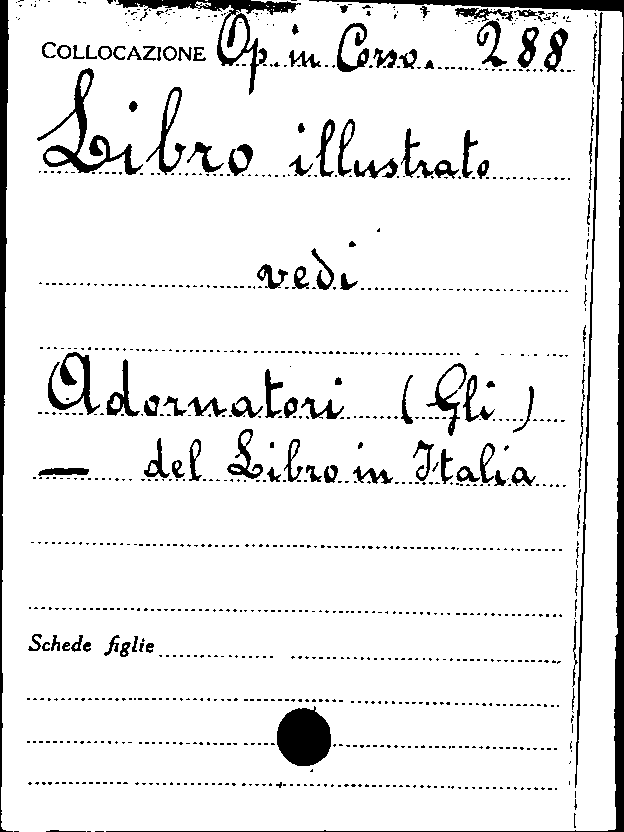 COLLOCAZIONE Op. in Corso. 288
Libro illustrato
vedi
Adornatori (Gli)
— del Libro in Italia
Schede figlie